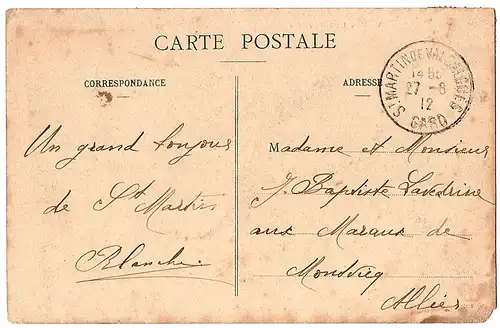 CARTE POSTALE
CORRESPONDANCE
Un grand bonjour
de St Martin
Blanche
ADRESSE
ST MARTIN DE VALGALGUES
14 35
27 - 8
12
GARD
Madame et Monsieur
J. Baptiste Lavedrine
aux Maraux de
Montvicq
Allier